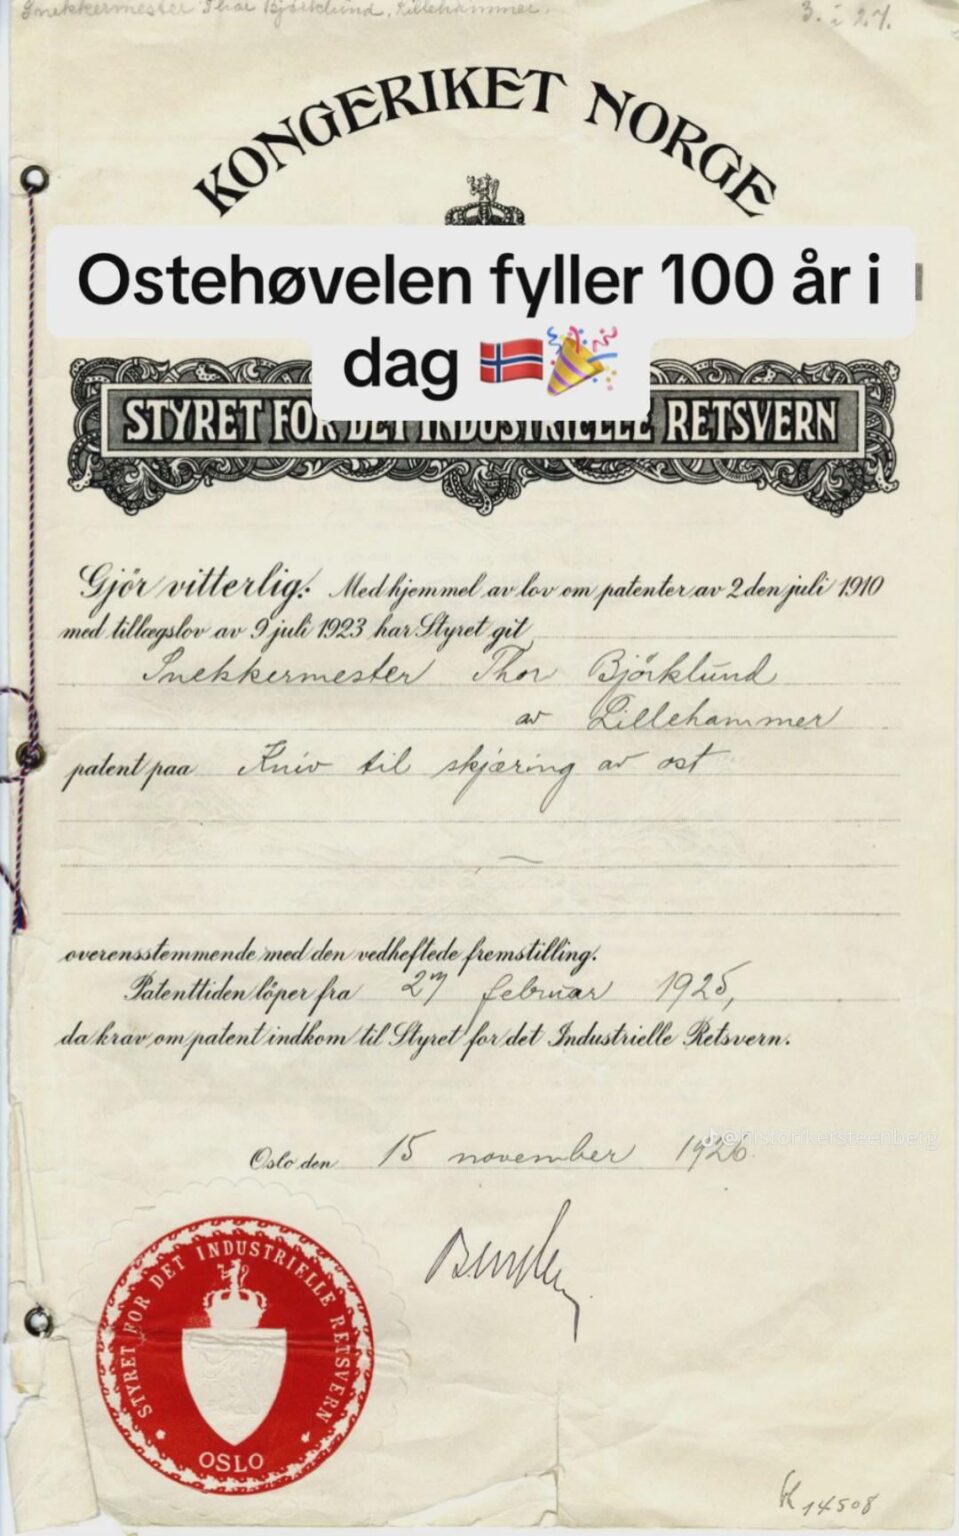 Snekkermester Thor Bjørklund, Lillehammer.
KONGERIKET NORGE
Ostehøvelen fyller 100 år i
dag 🇳🇴🎉
STYRET FOR DET INDUSTRIELLE RETSVERN
Gjör vitterlig: Med hjemmel av lov om patenter av 2 den juli 1910
med tillægslov av 9 juli 1923 har Styret git
Snekkermester Thor Björklund
av Lillehammer
patent paa Kniv til skjæring av ost
overensstemmende med den vedheftede fremstilling.
Patenttiden löper fra 27 februar 1925,
da krav om patent indkom til Styret for det Industrielle Retsvern.
@historikersteenberg
Oslo den 15 november 1926.
STYRET FOR DET INDUSTRIELLE RETSVERN
OSLO
14508